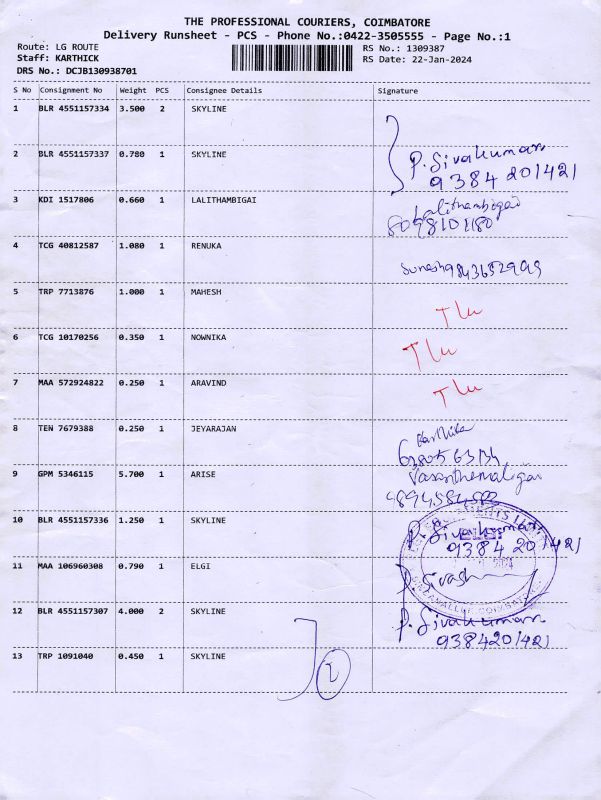 THE PROFESSIONAL COURIERS, COIMBATORE
Delivery Runsheet - PCS - Phone No.:0422-3505555 - Page No.:1
Route: LG ROUTE RS No.: 1309387
Staff: KARTHICK RS Date: 22-Jan-2024
DRS No.: DCJB130938701
S No Consignment No Weight PCS Consignee Details Signature
1 BLR 4551157334 3.500 2 SKYLINE
2 BLR 4551157337 0.780 1 SKYLINE P. Sivakumar
9384201421
3 KDI 1517806 0.660 1 LALITHAMBIGAI Lalithambigai
8098101180
4 TCG 40812587 1.080 1 RENUKA
5 TRP 7713876 1.000 1 MAHESH
6 TCG 10170256 0.350 1 NOWNIKA
7 MAA 572924822 0.250 1 ARAVIND
8 TEN 7679388 0.250 1 JEYARAJAN Karthika
9 GPM 5346115 5.700 1 ARISE
10 BLR 4551157336 1.250 1 SKYLINE P. Sivakumar
9384201421
11 MAA 106960308 0.790 1 ELGI
12 BLR 4551157307 4.000 2 SKYLINE P. Sivakumar
9384201421
13 TRP 1091040 0.450 1 SKYLINE